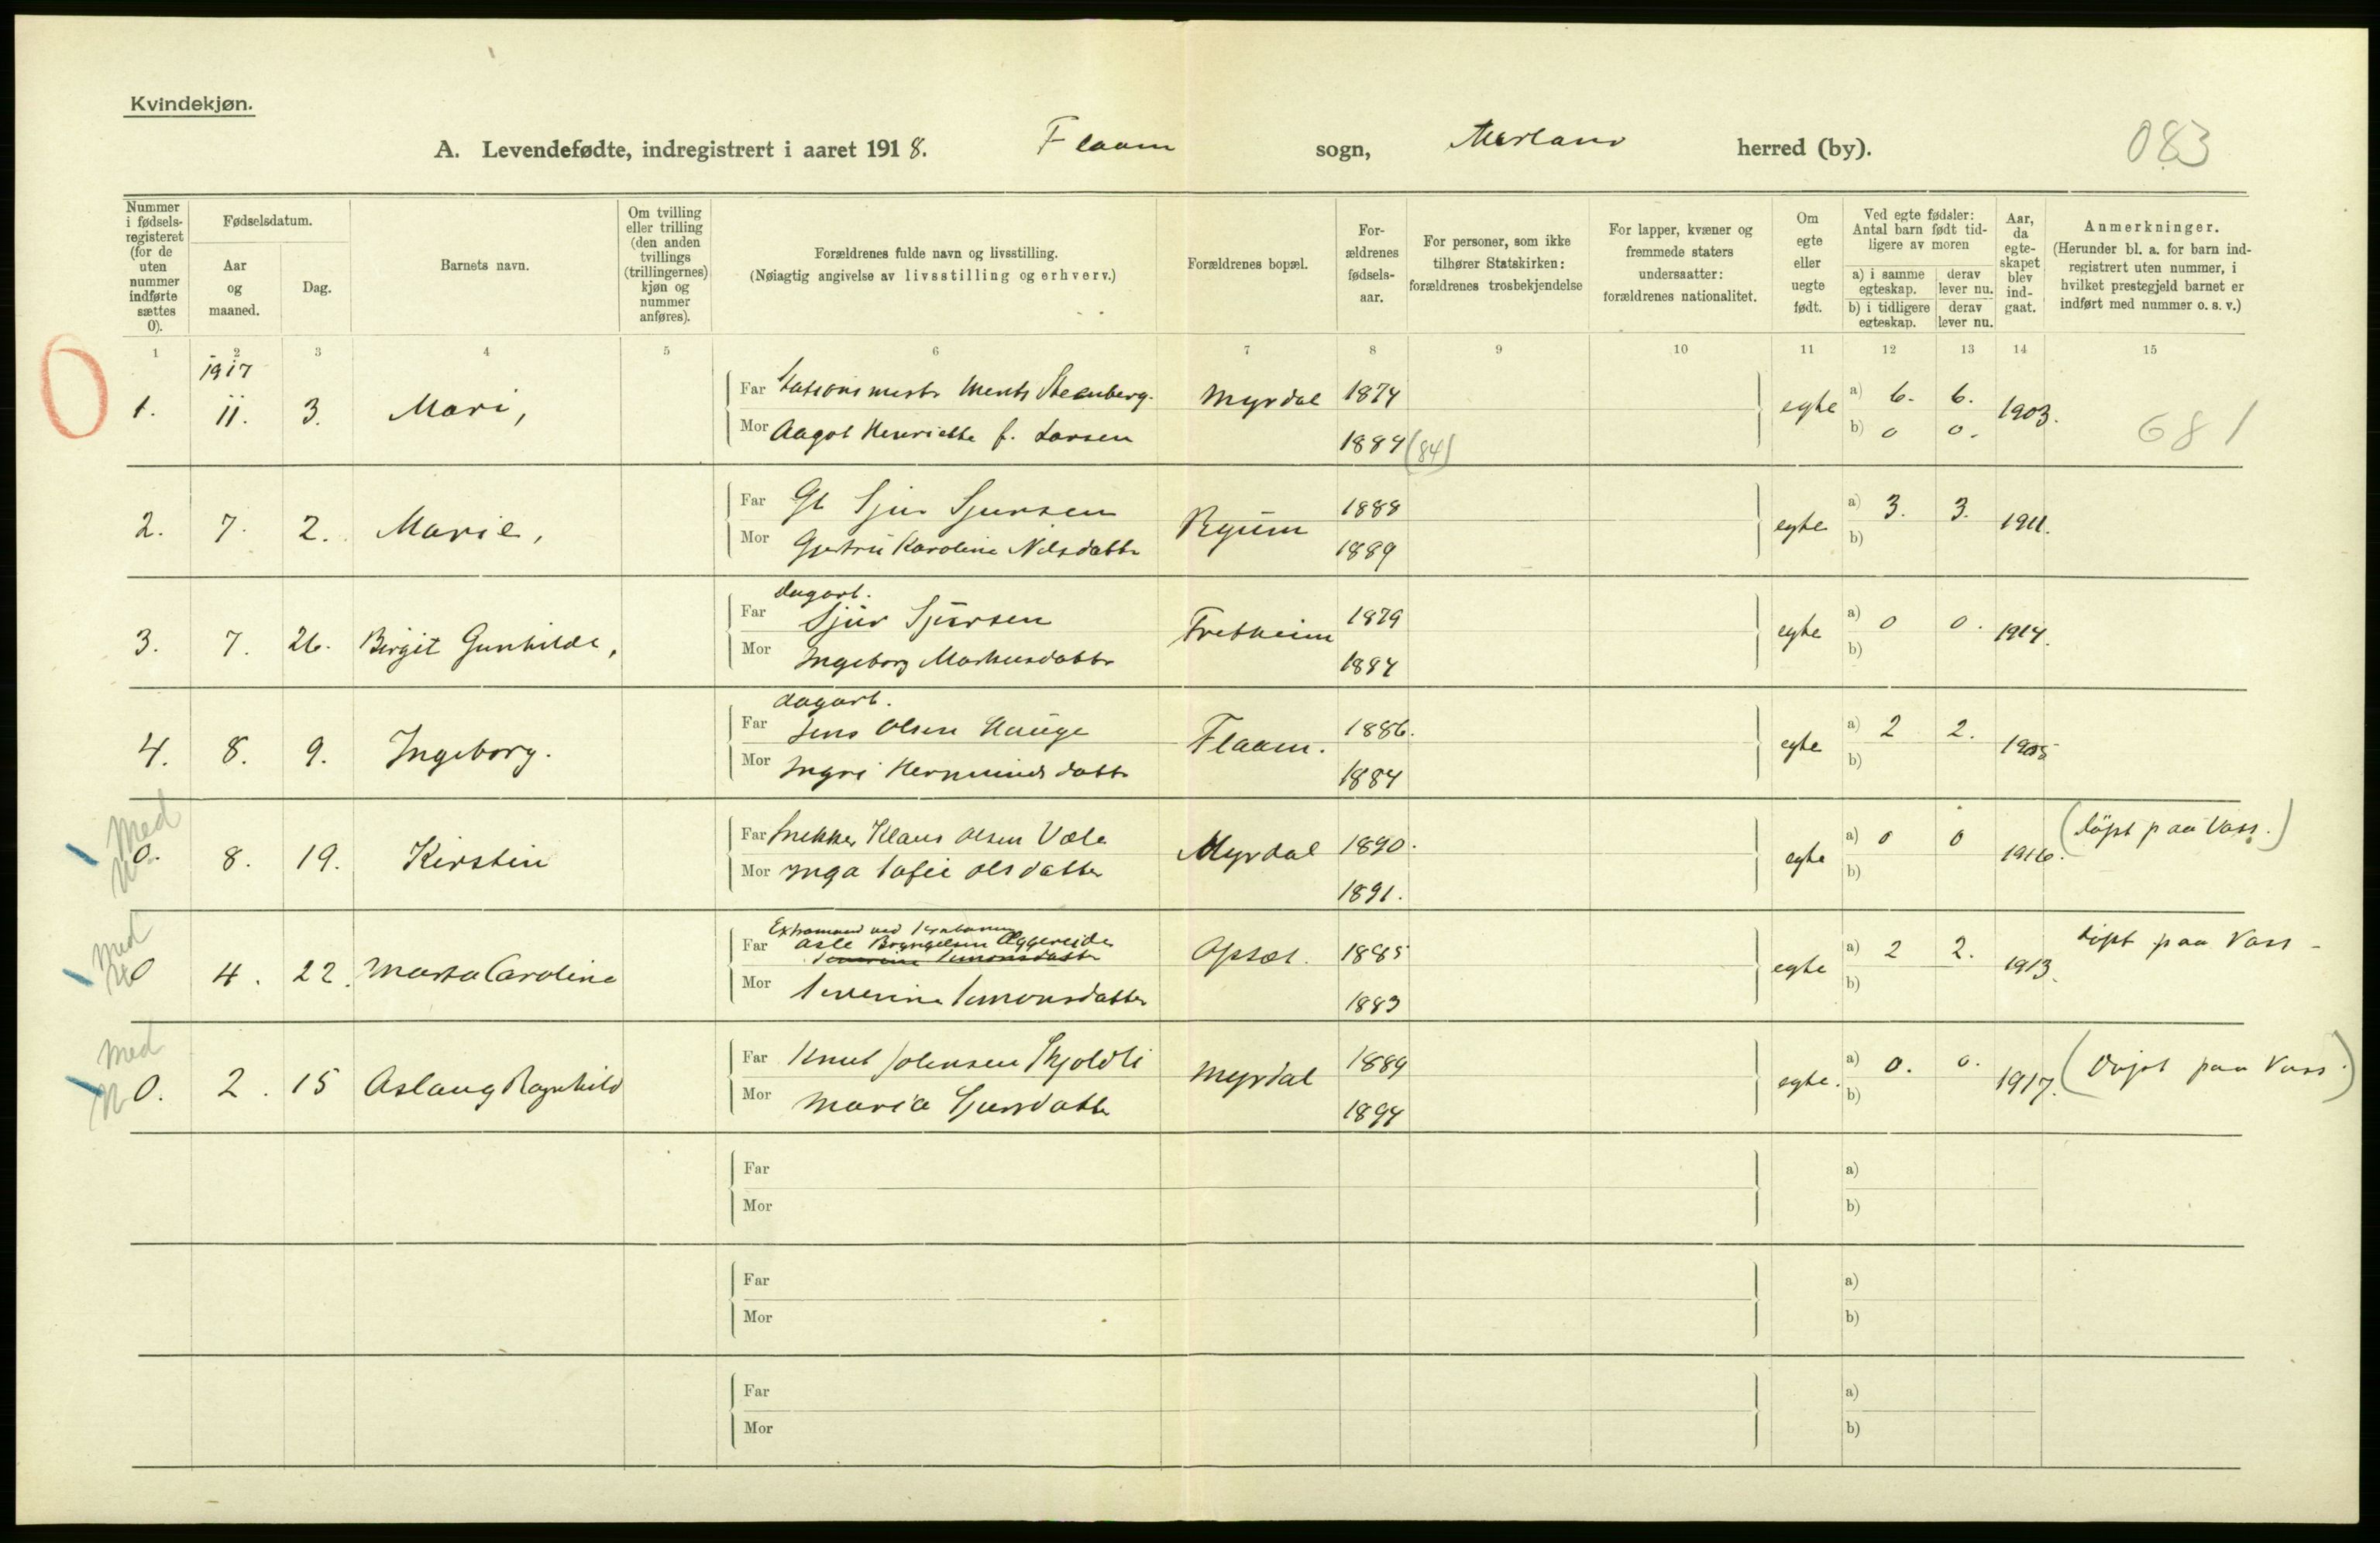 Kvindekjøn.
A. Levendefødte, indregistrert i aaret 1918. Flaam sogn, herred (by). 083
Nummer i fødselsregisteret (for de uten nummer indførte sættes 0).
Fødselsdatum.
Aar og maaned.
Dag.
Barnets navn.
Om tvilling eller trilling (den anden tvillings (trillingernes) kjøn og nummer anføres).
Forældrenes fulde navn og livsstilling.
(Nøiagtig angivelse av livsstilling og erhverv.)
Forældrenes bopæl.
Forældrenes fødselsaar.
For personer, som ikke tilhører Statskirken: forældrenes trosbekjendelse
For lapper, kvæner og fremmede staters undersaatter: forældrenes nationalitet.
Om egte eller uegte født.
Ved egte fødsler: Antal barn født tidligere av moren
a) i samme egteskap. derav lever nu.
b) i tidligere egteskap. derav lever nu.
Aar, da egteskapet blev indgaat.
Anmerkninger.
(Herunder bl. a. for barn indregistrert uten nummer, i hvilket prestegjeld barnet er indført med nummer o. s. v.)
1 2 3 4 5 6 7 8 9 10 11 12 13 14 15
0
1917
1. 11. 3. Mari, Far Stationsmester Ments Steenberg. Myrdal 1874 egte a) 6. 6. 1903.
Mor Aagot Henriette f. Larsen 1884 (84) b) 0 0. 681
2. 7. 2. Marie, Far Gb Sjur Sjursen Ryum 1888 egte a) 3. 3. 1911.
Mor Karoline Nilsdatter 1889 b)
dagarb.
3. 7. 26. Birgit Gunhilda, Far Sjur Sjursen Fretheim 1879 egte a) 0 0. 1914.
Mor Ingeborg Markusdatter 1884 b)
dagarb.
4. 8. 9. Ingeborg. Far Jens Olsen Hauge Flaam. 1886. egte a) 2 2.
Mor Ingri Hermundsdatter 1884 b)
Med
0. 8. 19. Kirstin Far Snekker Klaus Olsen Væle Myrdal 1890. egte a) 0 0 1916. (døpt paa Voss.)
Mor Inga Sofie Olsdatter 1891. b)
Med
Extramand ved Jernbanen
0 4. 22. Marta Caroline Far Asle Brynjelsen Æggereide Opset. 1885 egte a) 2 2. 1913. døpt paa Voss
Severine Simonsdatter
Mor Severine Simonsdatter 1883 b)
Med
0. 2. 15 Aslaug Ragnhild Far Knut Johnsen Skjoldli Myrdal 1889 egte. a) 0. 0. 1917. (Døpt paa Voss.)
Mor Maria Sjursdatter 1894 b)
Far a)
Mor b)
Far a)
Mor b)
Far a)
Mor b)